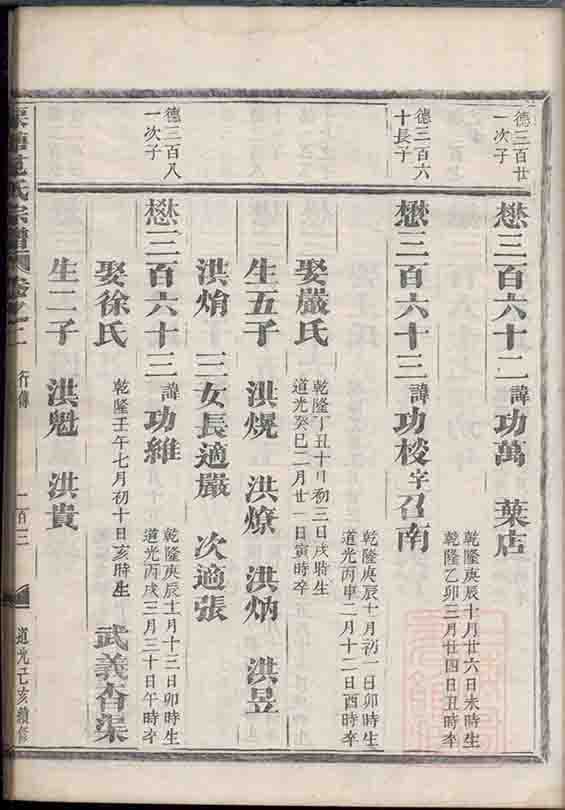 德三百廿
一次子
懋三百六十二 諱功萬 葉店
乾隆庚辰十月廿六日未時生
乾隆乙卯三月廿四日丑時卒
德三百六
十長子
懋三百六十三 諱功梭 字召南
乾隆庚辰十月初一日卯時生
道光丙申二月十二日酉時卒
娶嚴氏
乾隆丁丑十月初三日戌時生
道光癸巳二月廿一日寅時卒
生五子 洪熀 洪燎 洪炳 洪昱
洪焇 三女長適嚴 次適張
德三百八
一次子
懋三百六十三 諱功維
乾隆庚辰十一月十二日卯時生
道光丙戌三月三十日午時卒
娶徐氏
乾隆壬午七月初十日亥時生
武義杳渠
生二子 洪魁 洪貴
氏宗譜
卷之二
行傳
一百三
道光己亥續修